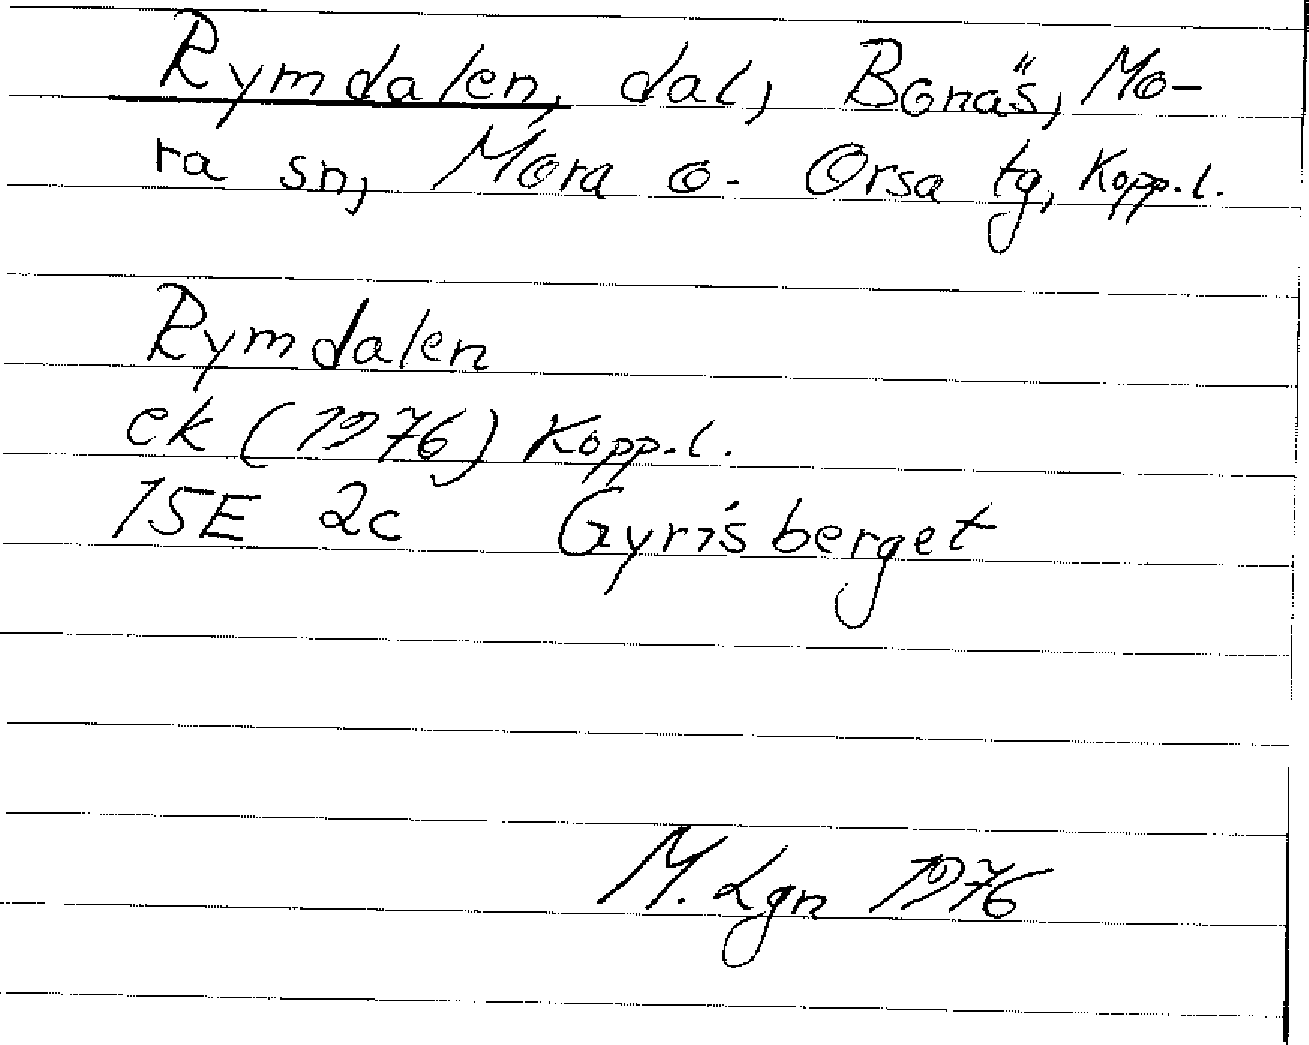 Rymdalen, dal, Bonäs, Mo-
ra sn, Mora o. Orsa tg, Kopp.l.
Rymdalen
ek (1976) Kopp.l.
15E 2c Gyrisberget
M. Lgn 1976